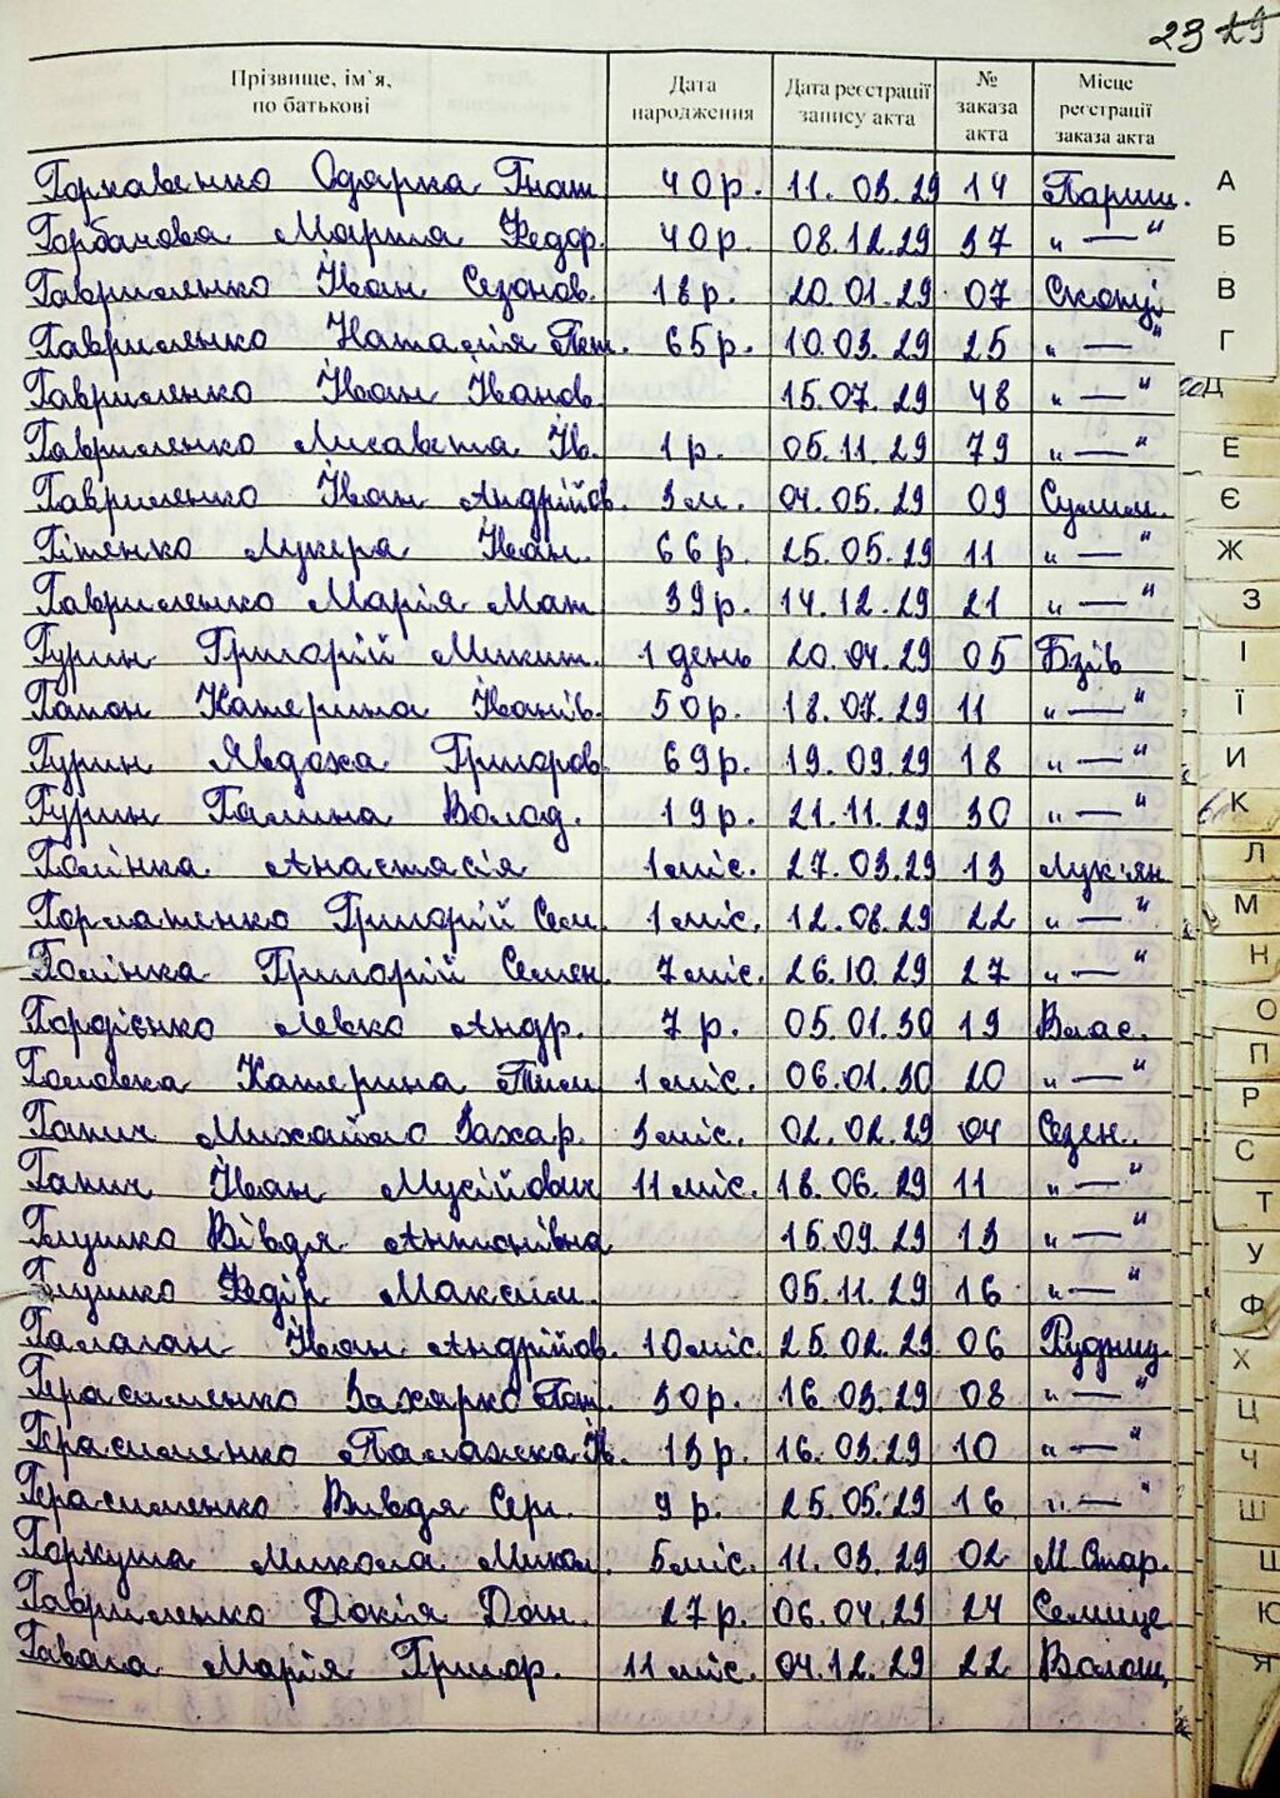 23 29
Прізвище, ім`я, по батькові Дата народження Дата реєстрації запису акта № заказа акта Місце реєстрації заказа акта
Горкавенко Одарка Гнат 40р. 11.03.29 14 Париш. А
Горбачова Марта Федор. 40р. 08.12.29 37 „ — " Б
Гавриленко Іван Сезонов. 18р. 20.01.29 07 Скопці В
Гавриленко Наталія Пет. 65р. 10.03.29 25 „ — " Г
Гавриленко Іван Іванов. 15.07.29 48 „ — " Д
Гавриленко Лисавета Ів. 1р. 05.11.29 79 „ — " Е
Гавриленко Іван Андрійов. 3м. 04.05.29 09 Сулим. Є
Гітенко Лукера Іван. 66р. 25.05.29 11 „ — " Ж
Гавриленко Марія Мат 39р. 14.12.29 21 „ — " З
Гурин Григорій Микит. 1 день 20.04.29 05 Бзів І
Гапон Катерина Іванів. 50р. 18.07.29 11 „ — " Ї
Гурин Явдоха Григоров. 69р. 19.09.29 18 „ — " И
Гурин Галина Волод. 19р. 21.11.29 30 „ — " К
Голінка Анастасія 1 міс. 27.03.29 13 Лук'ян Л
Горлатенко Григорій Сем. 1 міс. 12.08.29 22 „ — " М
Голінка Григорій Семен. 7 міс. 26.10.29 27 „ — " Н
Гордієнко Левко Андр. 7 р. 05.01.30 19 Влас. О
Головка Катерина Тим 1 міс. 06.01.30 20 „ — " П
Р
Гапич Михайло Захар. 3 міс. 02.02.29 04 Сезен. С
Гапич Іван Мусійович 11 міс. 18.06.29 11 „ — " Т
Глушко Вівдя Антонівна 15.09.29 13 „ — " У
Глушко Федір Максим. 05.11.29 16 „ — " Ф
Галаган Іван Андрійов. 10 міс. 25.02.29 06 Рудниц. Х
Герасименко Захарко Пет. 30р. 16.03.29 08 „ — " Ц
Герасименко Палажка Ів. 13р. 16.03.29 10 „ — " Ч
Герасименко Вивдя Серг. 9 р. 25.05.29 16 „ — " Ш
Горкуша Микола Микол. 5 міс. 11.03.29 02 М.Стар. Щ
Гавриленко Докія Дан. 27р. 06.04.29 24 Селище Ю
Гавага Марія Григор. 11 міс. 04.12.29 22 Волош. Я